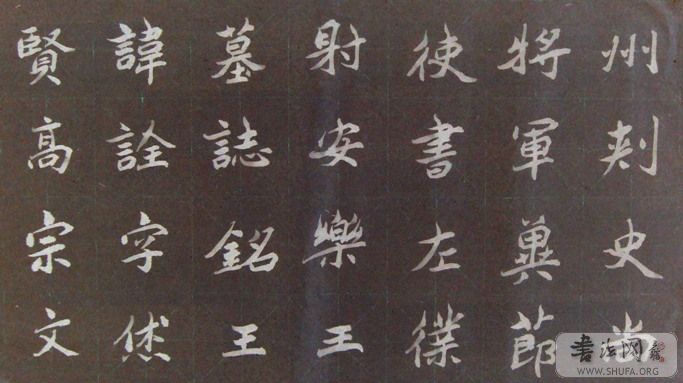 州刾史尚
將軍冀節
使書左僕
射安樂王
墓誌銘王
諱詮字烋
賢高宗文
書法网
WWW.SHUFA.ORG